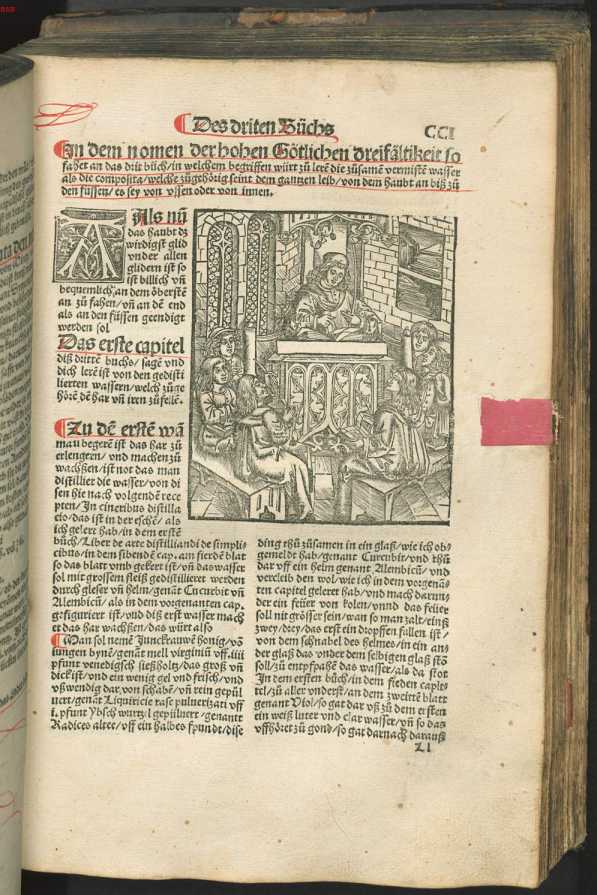 Des driten Bůchs
CCI
In dem nomen der hohen Götlichen dreifältikeit so
fahet an das drit bůch/in welchem begriffen würt zů lerē die zůsamē vermistē wasser
als die composita/welche zůgehörig seint dem gantzen leib/von dem haubt an biß zů
den füssen/es sey von vssen oder von innen.
Als nů
das haubt dz
wirdigst glid
vnder allen
glidern ist so
ist billich vñ
bequemlich,an dem öberstē
an zů fahen/vñ an dē end
als an den füssen geendigt
werden sol
Das erste capitel
diß drittē buchs/sagē vnd
dich lerē ist von den gedisti
lierten wassern/welch zůge
hörē dē har vñ iren zůfellē.
Zu dē erstē wā
man begerē ist das har zů
erlengern/vnd machen zů
wachßen/ist not das man
distillier die wasser/von di
sen hie nach volgendē rece
pten/In cineribus distilla
cio/das ist in der eschē/als
ich gelert hab/in dem erstē
bůch/Liber de arte distillandi de simpli-
cibus/in dem sibendē cap.am fierdē blat
so das blatt vmb gekert ist/vñ das wasser
sol mit grossem fleiß gedistillieret werden
durch gleser vñ helm/genāt Cucurbit vñ
Alembicū/als in dem vorgenanten cap.
gefiguriert ist/vnd diß erst wasser mach
et das har wachßen/das würt also
Man sol nemē Junckfrauwē honig/vō
iungen bynē/genāt mell virginiū vff.iiii
pfunt venedigsch sießholtz/das groß vñ
dick ist/vnd ein wenig gel vnd frisch/vnd
vßwendig dar von schabē/vñ rein gepül
uert/genāt Liquiricie rase pulverizati vff
i.pfunt Ybsch wurtzel gepülvert/genant
Radices altee/vff ein halbes pfundt/dise
ding thů zůsamen in ein glaß/wie ich ob-
gemeldt hab/genant Cucurbit/vnd thů
dar vff ein helm genant Alembicū/vnd
vercleib den wol/wie ich in dem vorgenā-
ten capitel geleret hab/vnd mach darun-
der ein feüer von kolen/vnnd das feüer
soll nit grösser sein/wan so man zalt/einß
zwey/drey/das erst ein dropffen fallen ist/
von dem schnabel des helmes/in ein an-
der glaß das vnder dem selbigen glaß stō
soll/zů entpfahē das wasser/als da stot
In dem ersten bůch/in dem sieden capit-
tel/zů aller vnderst/an dem zweitē blatt
genant Viol/so gat dar vß zů dem ersten
ein weiß luter vnd clar wasser/vñ so das
vffhöret zů gond/so gat darnach darauß
LI